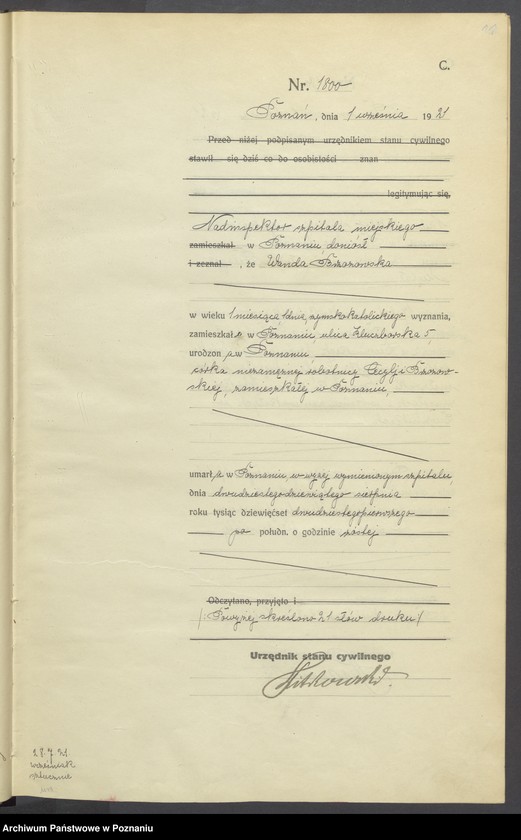 C.
Nr. 1800
Poznań, dnia 1 września 1921
Przed niżej podpisanym urzędnikiem stanu cywilnego
stawił się dziś co do osobistości znan
legitymując się,
Nadinspektor szpitala miejskiego
zamieszkał w Poznaniu doniósł
i zeznał, że Wanda Brzozowska
w wieku 1 miesiąca 1 dnia, rzymskokatolickiego wyznania,
zamieszkała w Poznaniu, ulica Kluczborska 5,
urodzona w Poznaniu,
córka niezamężnej robotnicy Cecylji Brzozow-
skiej, zamieszkałej w Poznaniu,
umarła w Poznaniu, w wyżej wymienionym szpitalu,
dnia dwudziestegodziewiątego sierpnia
roku tysiąc dziewięćset dwudziestegopierwszego
po połudn. o godzinie szóstej
Odczytano, przyjęto i
/: Powyżej skreślono 21 słów druku /
Urzędnik stanu cywilnego
28 7 21
Archiwum Państwowe w Poznaniu